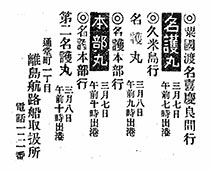 ◎粟國渡名喜慶良間行
名護丸 三月七日 午前九時出港
◎久米島行
名護丸 三月八日 午前九時出港
◎名護本部行
本部丸 三月七日 午前七時出港
◎名護本部行
第二名護丸 三月八日 午前十時出港
通堂町一丁目
離島航路船取扱所
電話一二一番